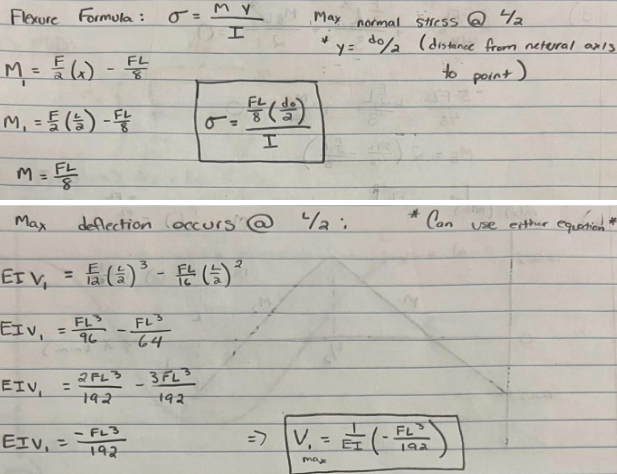 Flexure Formula: σ = M y / I Max normal stress @ L/2
* y = do/2 (distance from netural axis to point)
M₁ = F/2 (x) - FL/8
M₁ = F/2 (L/2) - FL/8
σ = FL/8 (do/2) / I
M = FL/8
Max deflection occurs @ L/2: * Can use either equation *
EI V₁ = F/12 (L/2)³ - FL/16 (L/2)²
EIV₁ = FL³/96 - FL³/64
EIV₁ = 2FL³/192 - 3FL³/192
EIV₁ = -FL³/192 => V₁ max = 1/EI (-FL³/192)